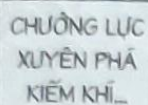 CHƯỞNG LỰC
XUYÊN PHÁ
KIẾM KHÍ...